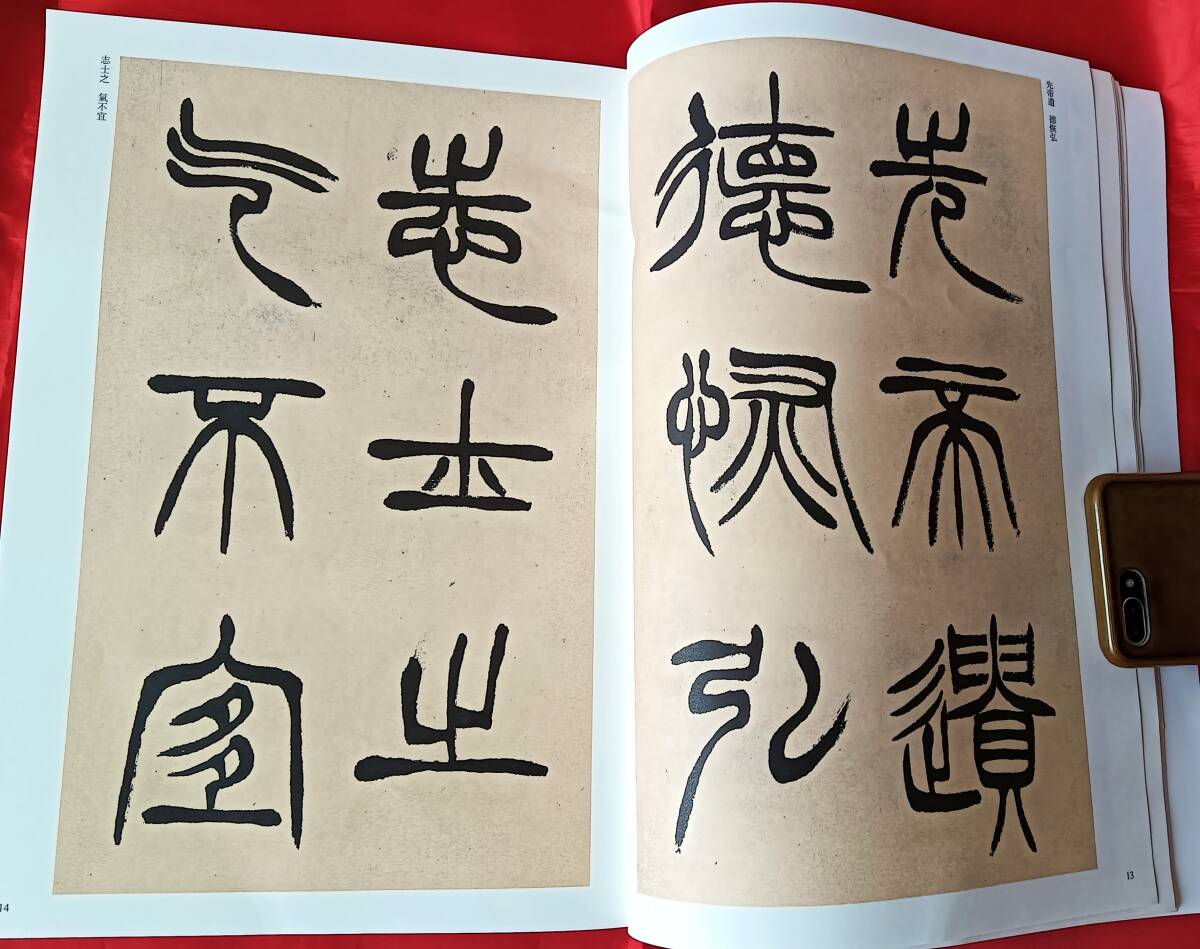 先帝遺 德恢弘
先帝遺
德恢弘
13
志士之
气不宜
志士之 氣不宜
14